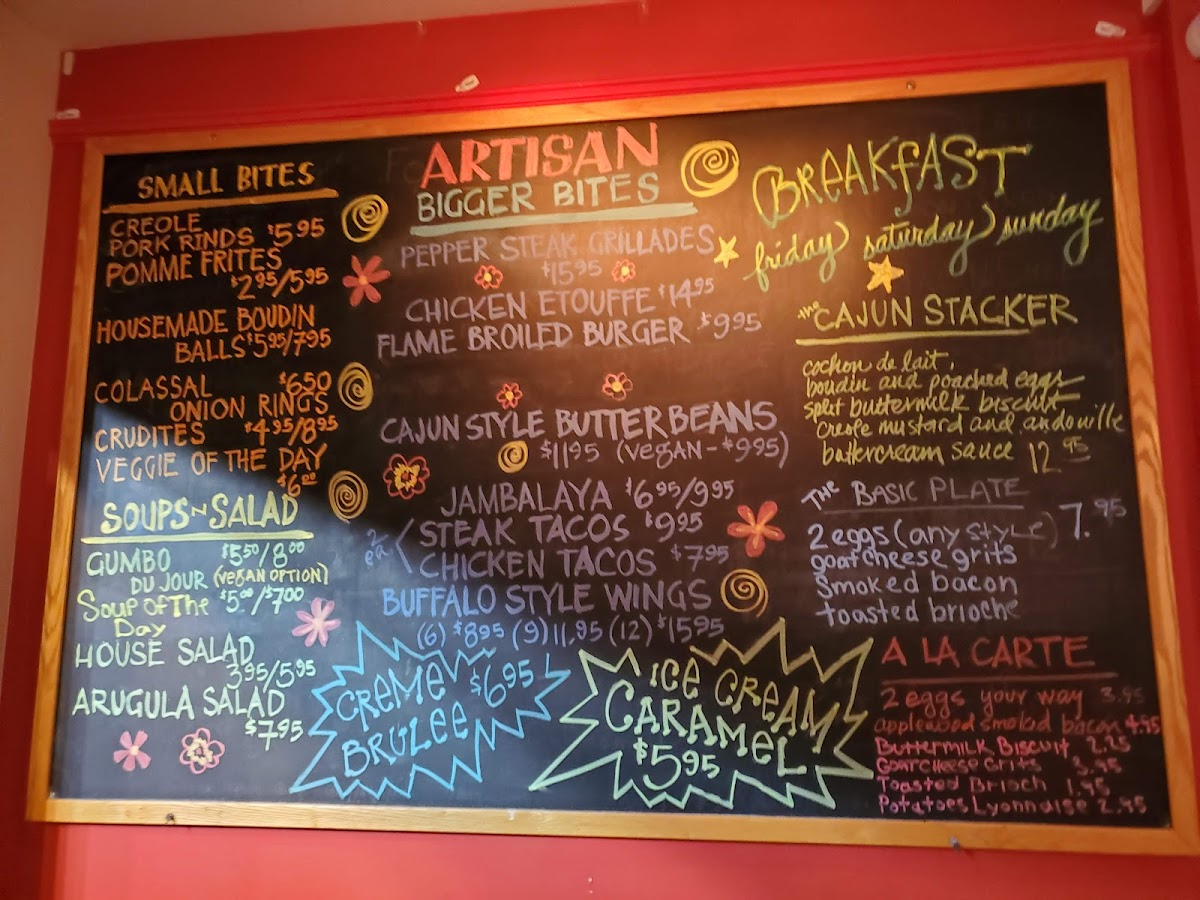 SMALL BITES
CREOLE
PORK RINDS $5.95
POMME FRITES
$2.95/5.95
HOUSEMADE BOUDIN
BALLS $5.95/7.95
COLASSAL $6.50
ONION RINGS
CRUDITES $4.95/8.95
VEGGIE OF THE DAY
$6.00
SOUPS N SALAD
GUMBO $5.50/8.00
DU JOUR (VEGAN OPTION)
Soup OF The $5.00/$7.00
Day
HOUSE SALAD
3.95/5.95
ARUGULA SALAD
$7.95
ARTISAN
BIGGER BITES
PEPPER STEAK GRILLADES
$15.95
CHICKEN ETOUFFE $14.95
FLAME BROILED BURGER $9.95
CAJUN STYLE BUTTERBEANS
$11.95 (vegan - $9.95)
JAMBALAYA $6.95/9.95
2 ea < STEAK TACOS $9.95
CHICKEN TACOS $7.95
BUFFALO STYLE WINGS
(6) $8.95 (9) 11.95 (12) $15.95
CREME $6.95
BRULEE
ICE CREAM
CARAMEL
$5.95
BREAKFAST
friday) saturday) sunday
THE CAJUN STACKER
cochon de lait,
boudin and poached eggs
split buttermilk biscuit
creole mustard and andouille
buttercream sauce 12.95
THE BASIC PLATE
2 eggs (any STYLE) 7.95
goat cheese grits
smoked bacon
toasted brioche
A LA CARTE
2 eggs your way 3.95
applewood smoked bacon 4.95
Buttermilk Biscuit 2.25
Goat Cheese Grits 3.95
Toasted Brioch 1.95
Potatoes Lyonnaise 2.95